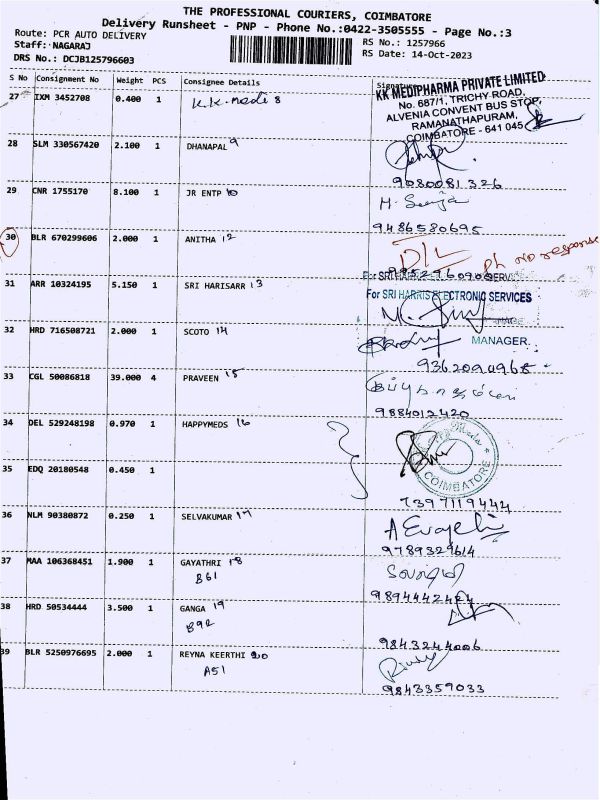 THE PROFESSIONAL COURIERS, COIMBATORE
Delivery Runsheet - PNP - Phone No.:0422-3505555 - Page No.:3
Route: PCR AUTO DELIVERY
Staff: NAGARAJ
DRS No.: DCJB125796603
RS No.: 1257966
RS Date: 14-Oct-2023
S No Consignment No Weight PCS Consignee Details Signature
27 IXM 3452708 0.400 1 K.K. Medi 8
KK MEDIPHARMA PRIVATE LIMITED
No. 687/1, TRICHY ROAD,
ALVENIA CONVENT BUS STOP,
RAMANATHAPURAM,
COIMBATORE - 641 045
28 SLM 330567420 2.100 1 DHANAPAL 9
9080081326
29 CNR 1755170 8.100 1 JR ENTP 10
9486580695
30 BLR 670299606 2.000 1 ANITHA 12
D/L ph no response
31 ARR 10324195 5.150 1 SRI HARISARR 13
For SRI HARRIS ELECTRONIC SERVICES
MANAGER.
32 HRD 716508721 2.000 1 SCOTO 14
33 CGL 50086818 39.000 4 PRAVEEN 15
9884012420
34 DEL 529248198 0.970 1 HAPPYMEDS 16
COIMBATORE
35 EDQ 20180548 0.450 1
7397119444
36 NLM 90380872 0.250 1 SELVAKUMAR 17
9789329614
37 MAA 106368451 1.900 1 GAYATHRI 18
B61
38 HRD 50534444 3.500 1 GANGA 19
B92
9843244006
39 BLR 5250976695 2.000 1 REYNA KEERTHI 20
A51
9843359033